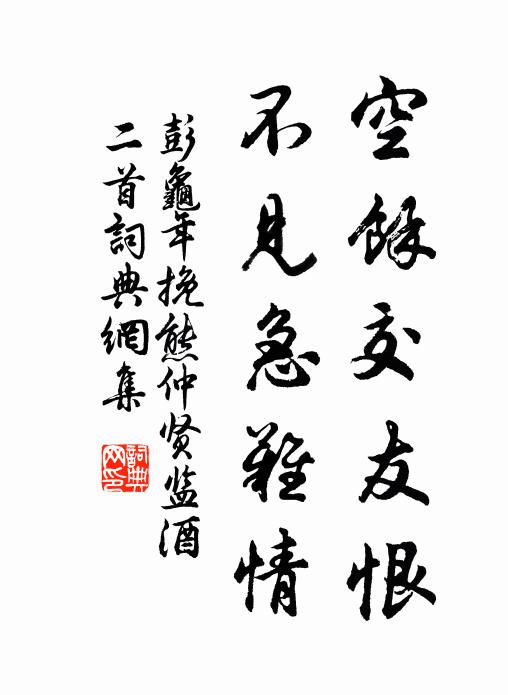 空餘交友恨
不見急難情
彭龜年挽熊仲贤监酒
二首詞典網集
詞典网印